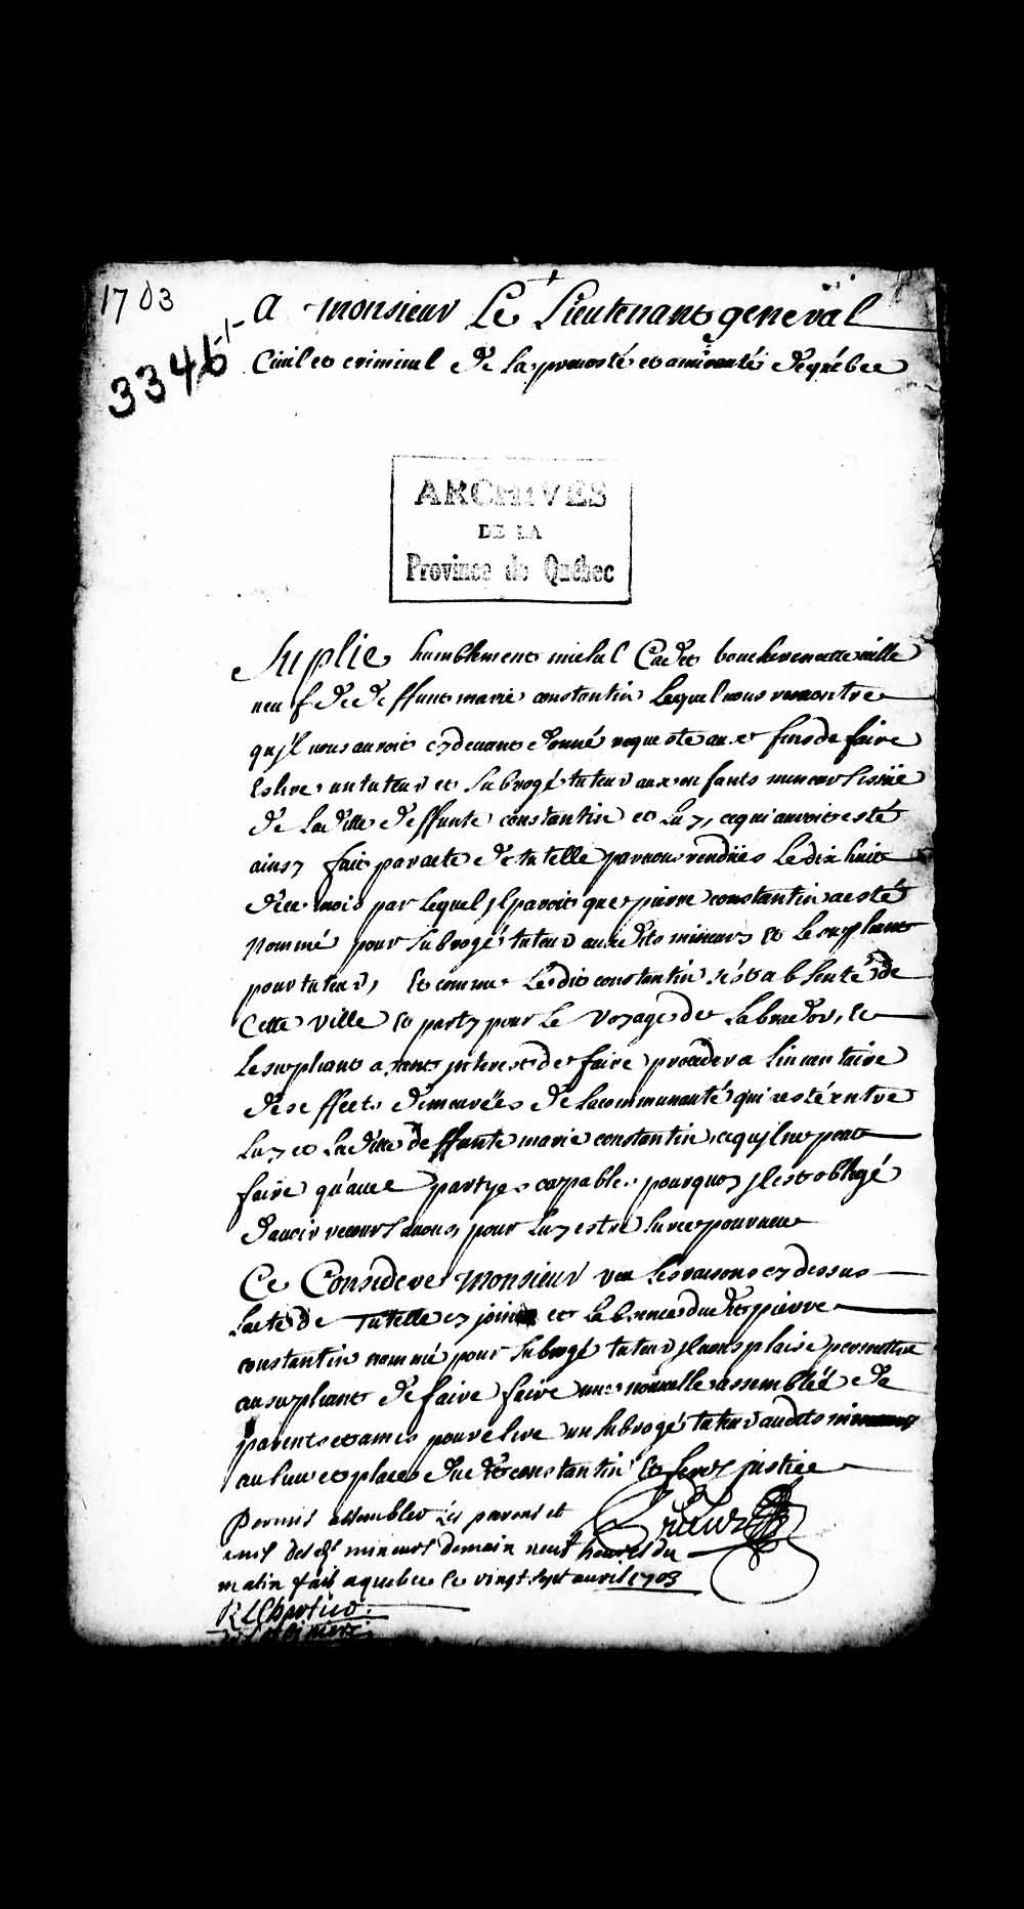 1703
3346-1-
A Monsieur Le Lieutenant general
Civil et criminel de la prevosté et amirauté de québec
ARCHIVES
DE LA
Province de Québec
Suplie humblement michel Cadet boucher en cette ville
veuf de deffunte marie constantin lequel vous remontre
qu'jl vous auroit cy devant donné requeste aux fins de faire
Eslire un tuteur et subrogé tuteur aux enfants mineurs issüe
de Laditte deffunte constantin et Luy, ce qui auroit esté
ainsy fait par acte de tutelle par vous rendües Le dix huit
de ce mois par Lequel jl paroit que pierre constantin a esté
Nommé pour subrogé tuteur auxdits mineurs Et Le supliant
pour tuteur, Et comme Le dit constantin s'est absenté de
Cette ville Et party pour Le voyage de Labrador, Et
Le supliant ayant jnterest de faire proceder a L'inventaire
des effects demeurëes de La communauté qui a esté entre
Luy et Laditte deffunte marie constantin, ce qu'jl ne peut
faire qu'avec partyes capables pourquoy jl est obligé
d'avoir recours a vous, pour Luy estre sur ce pourveu
Ce Consideré Monsieur veu Les raisons cy dessus
Lacte de Tutelle cy joint et Labsence dudt pierre
constantin nommé pour subrogé tuteur jl vous plaise permettre
au supliant de faire faire une nouvelle assemblëe de
parents et amis pour elire un subrogé tuteur audits mineurs
au lieu et place dudt constantin Et ferez justice
Permis assembler Les parens et
amis desds mineurs demain neuf heures du
matin fait a quebec ce vingt sept avril 1703
R L Chartier
de Lotbiniere